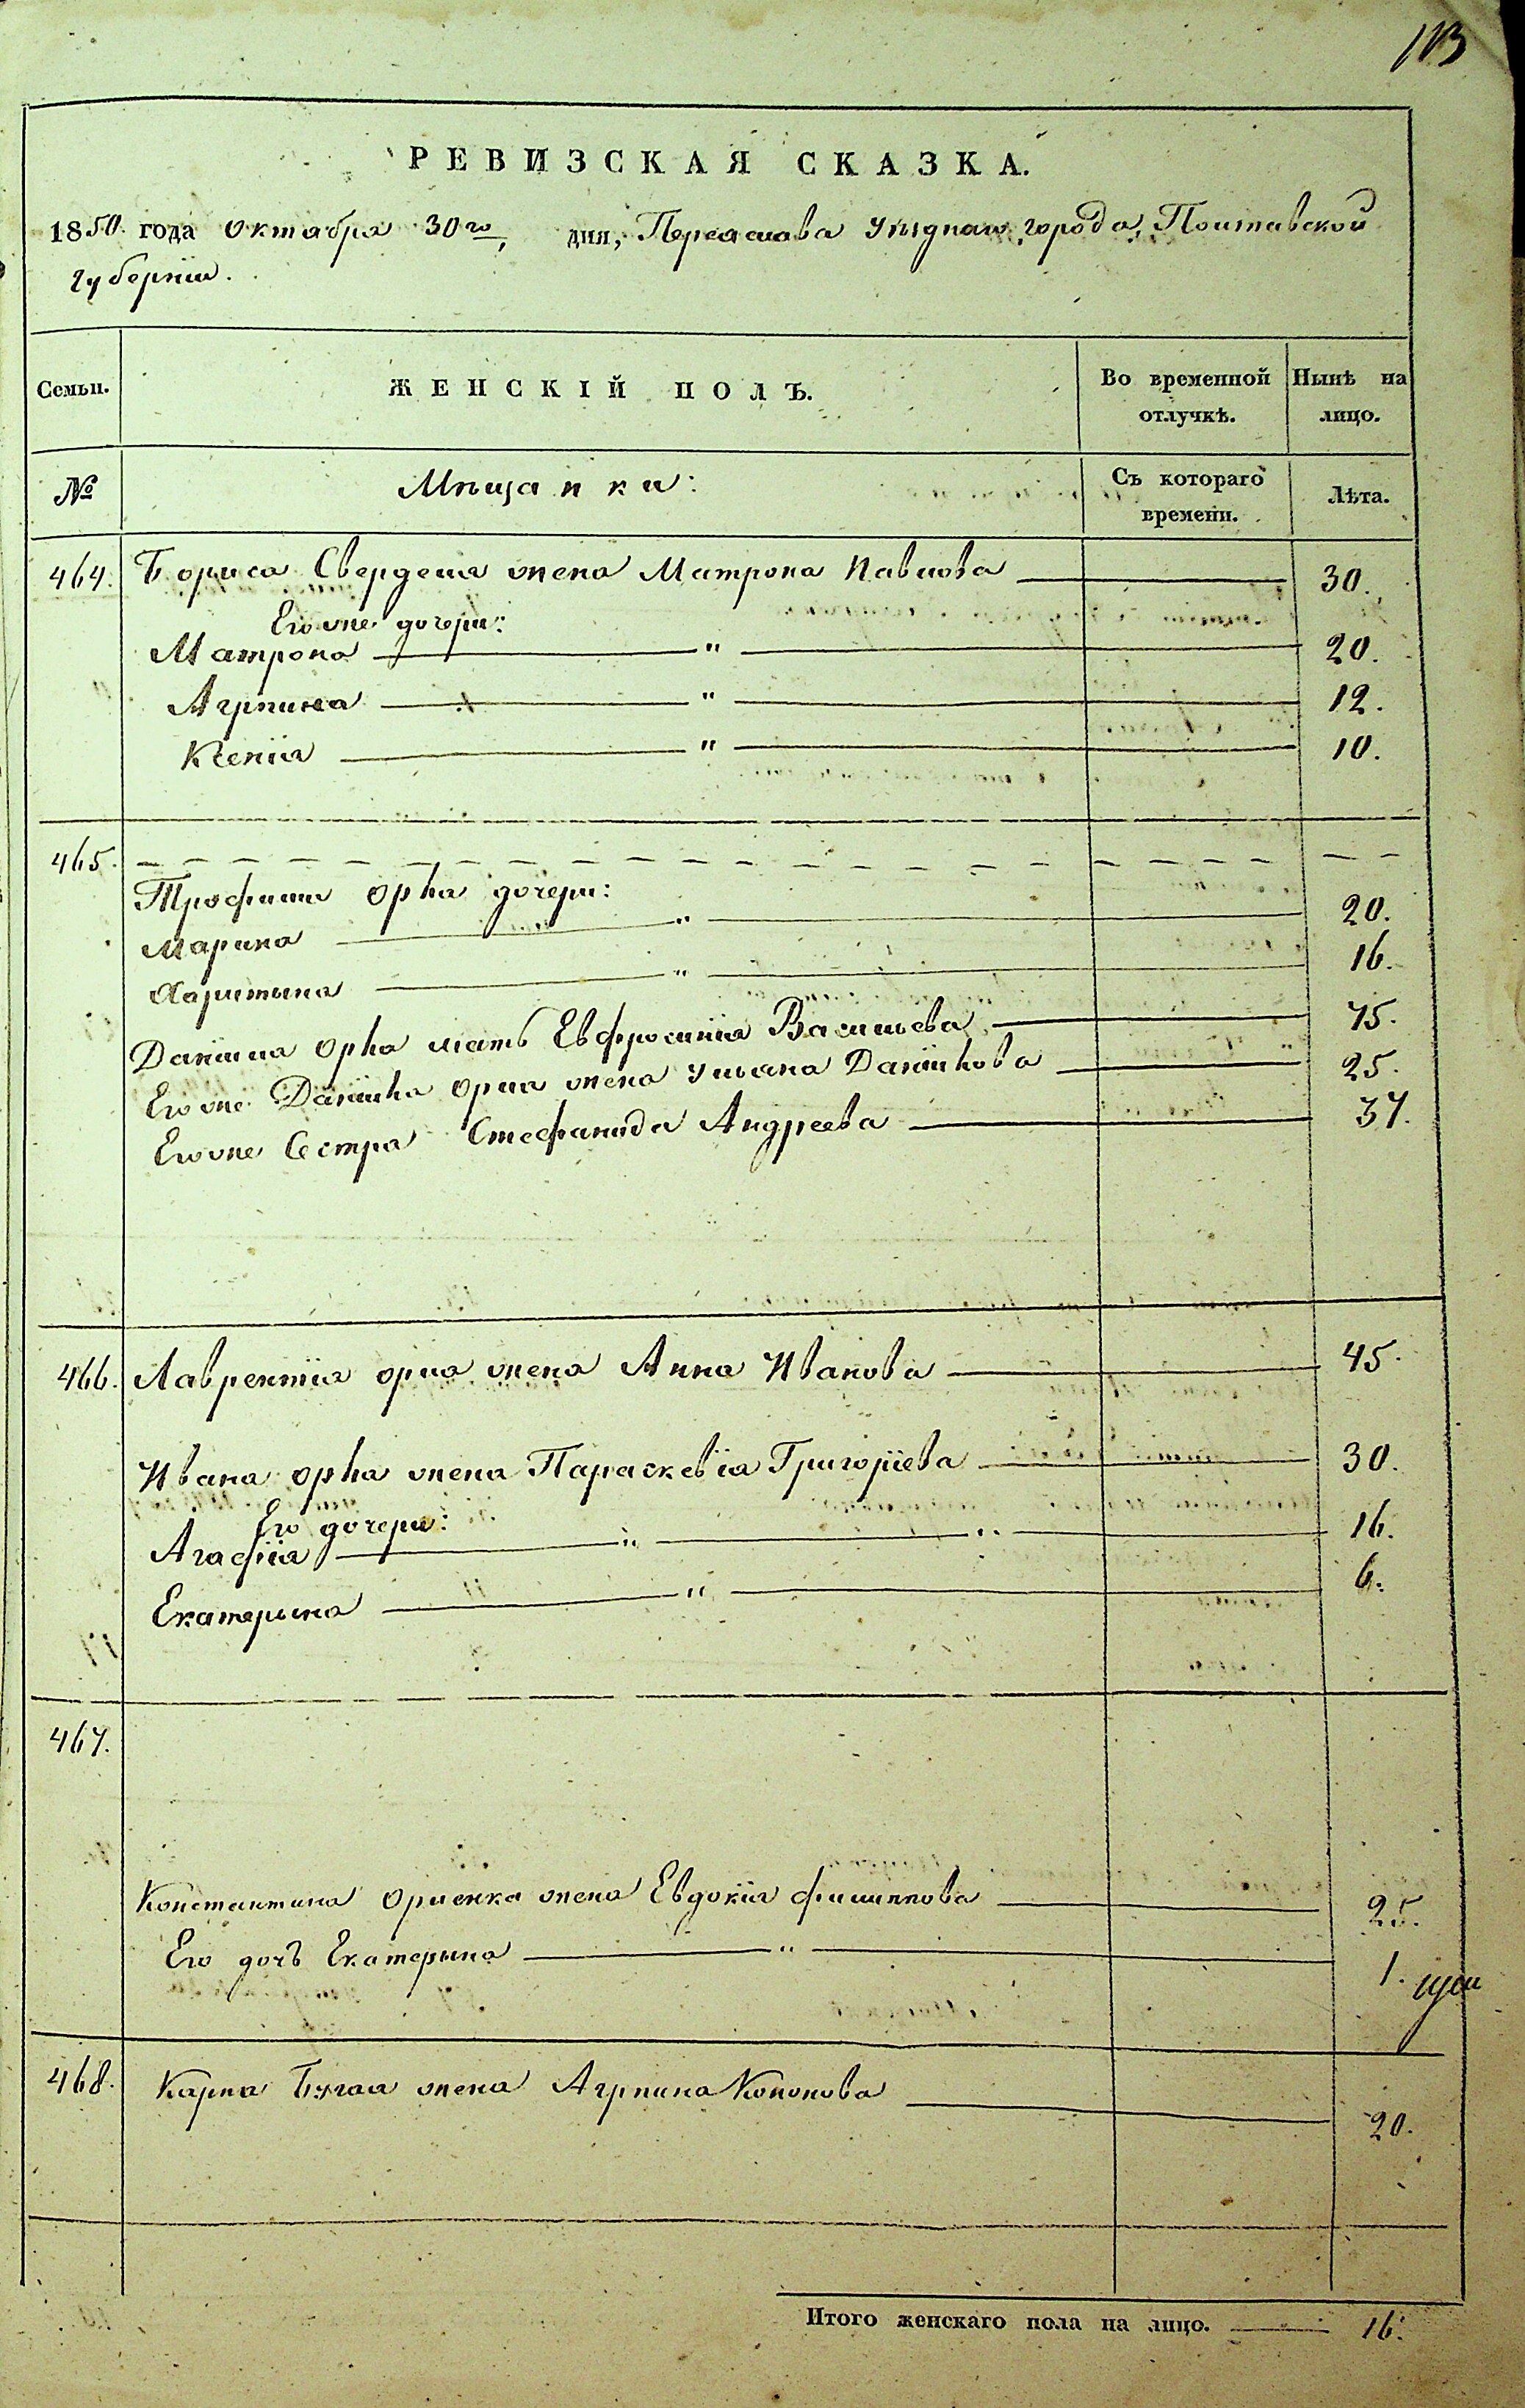 113
РЕВИЗСКАЯ СКАЗКА.
1850 года октября 30го, дня, Переаслава уѣзднаго города, Полтавской
губерніи.
Семьи. ЖЕНСКІЙ ПОЛЪ. Во временной отлучкѣ. Нынѣ на лицо.
№ Мѣщанки: Съ котораго времени. Лѣта.
464. Бориса Свердела жена Матрона Павлова 30.
Его же дочери:
Матрона " 20.
Агрпина " 12.
Ксенія " 10.
465.
Трофима Орла дочери:
Марина " 20.
Харитына " 16.
Даніила Орла мать Евфросинія Васильева 75.
Его же Даніила Орла жена Ульана Даніилова 25.
Его же Сестра Стефанида Андреева 37.
466. Лаврентія орла жена Анна Иванова 45.
Ивана орла жена Параскевіа Григоріева 30.
Его дочери:
Агафіа " " 16.
Екатерына " 6.
467.
Константина Орленка жена Евдокіа Филиппова 25.
Его дочь Екатерына " 1.
468. Карпа Бугая жена Агрпина Кононова 20.
Итого женскаго пола на лицо. 16.